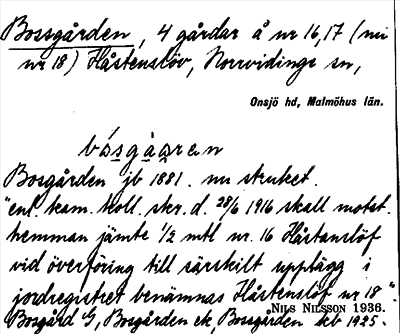 Bossgården, 4 gårdar å nr 16,17 (nu
nr 18) Håstenslöv, Norrvidinge sn,
Onsjö hd, Malmöhus län.
bósgà̱ṛen
Bosgården jb 1881. nu struket.
"enl. kam. koll. skr. d. 28/6 1916 skall motst.
hemman jämte 1/2 mtl nr. 16 Håstanslöf
vid överföring till särskilt upplägg i
jordregistret benämnas Håstenslöf nr 18".
NILS NILSSON 1936.
Bosgård G, Bosgården ek, Bosgården kb 1925.